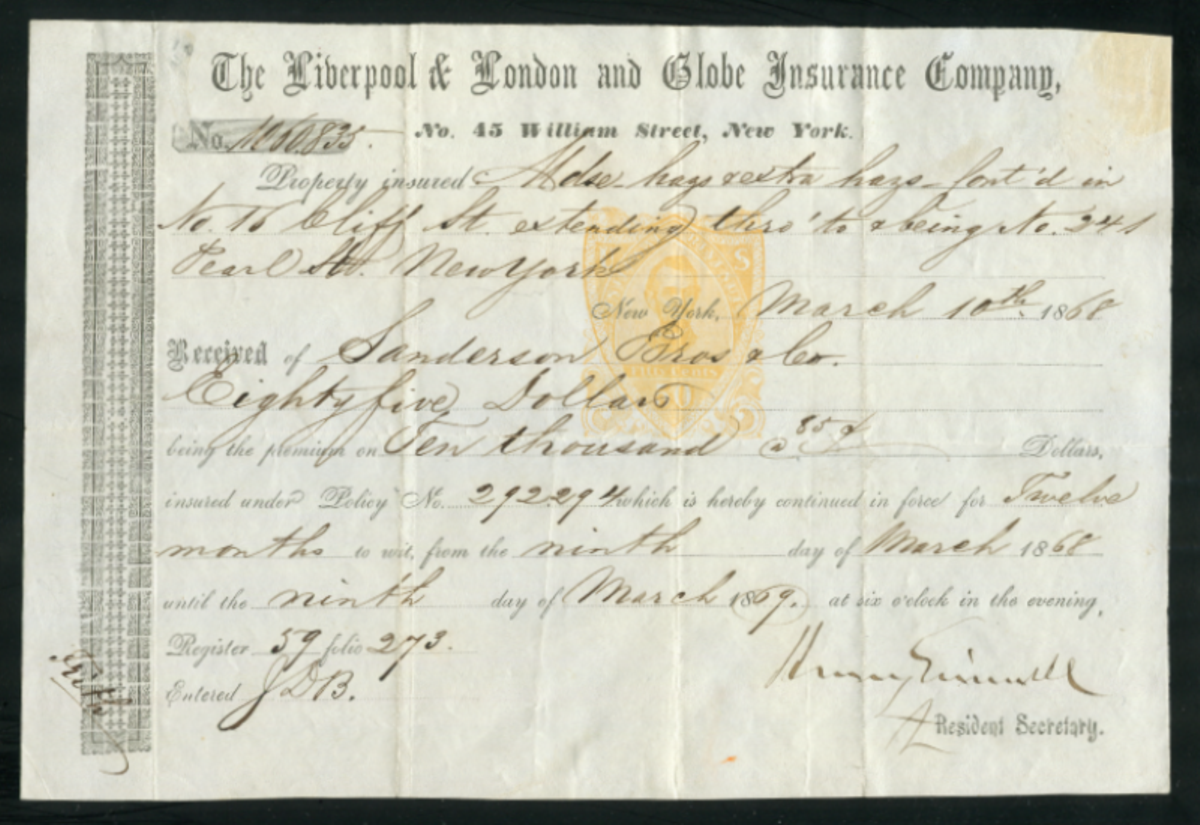 The Liverpool & London and Globe Insurance Company,
No. 1060835. No. 45 William Street, New York.
Property insured Mdse hazs & extra hazs cont'd in
No. 16 Cliff St. extending thro' to & being No. 241
Pearl St. New York
New York, March 10th. 1868
Received of Sanderson Bros & Co.
Eighty five Dollars
being the premium on Ten thousand @ 85¢ Dollars,
insured under Policy No. 292294 which is hereby continued in force for Twelve
months to wit, from the ninth day of March 1868
until the ninth day of March 1869. at six o'clock in the evening.
Register 59 folio 273.
Entered JDB.
Resident Secretary.
Fifty Cents